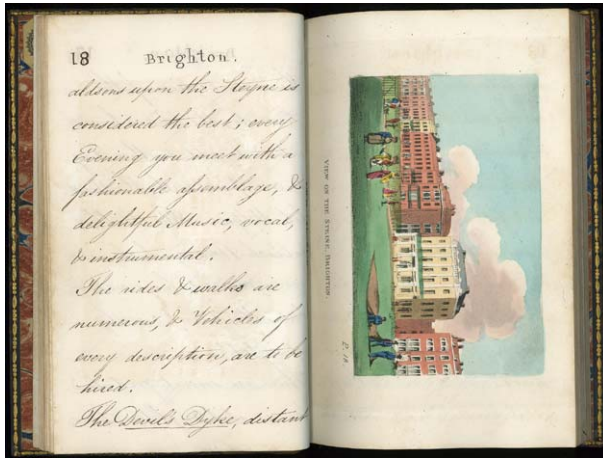 18 Brighton.
aldsons upon the Steyne is
considered the best; every
Evening you meet with a
fashionable assemblage, &
delightful Music, vocal,
& instrumental.
The rides & walks are
numerous, & Vehicles of
every description, are to be
hired.
The Devil's Dyke, distant
VIEW ON THE STEINE, BRIGHTON.
P. 18